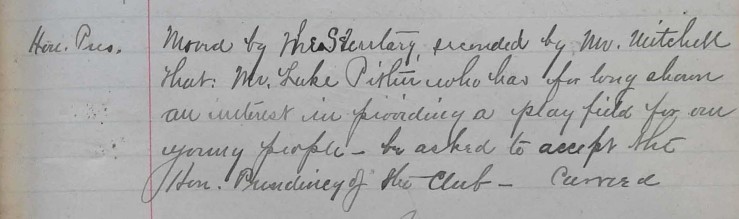 Hon. Pres. Moved by the Secretary, seconded by Mr. Mitchell
that: Mr. Luke Pither who has for long shown
an interest in providing a play field for our
young people - be asked to accept the
Hon. Presidincy of the Club - Carried